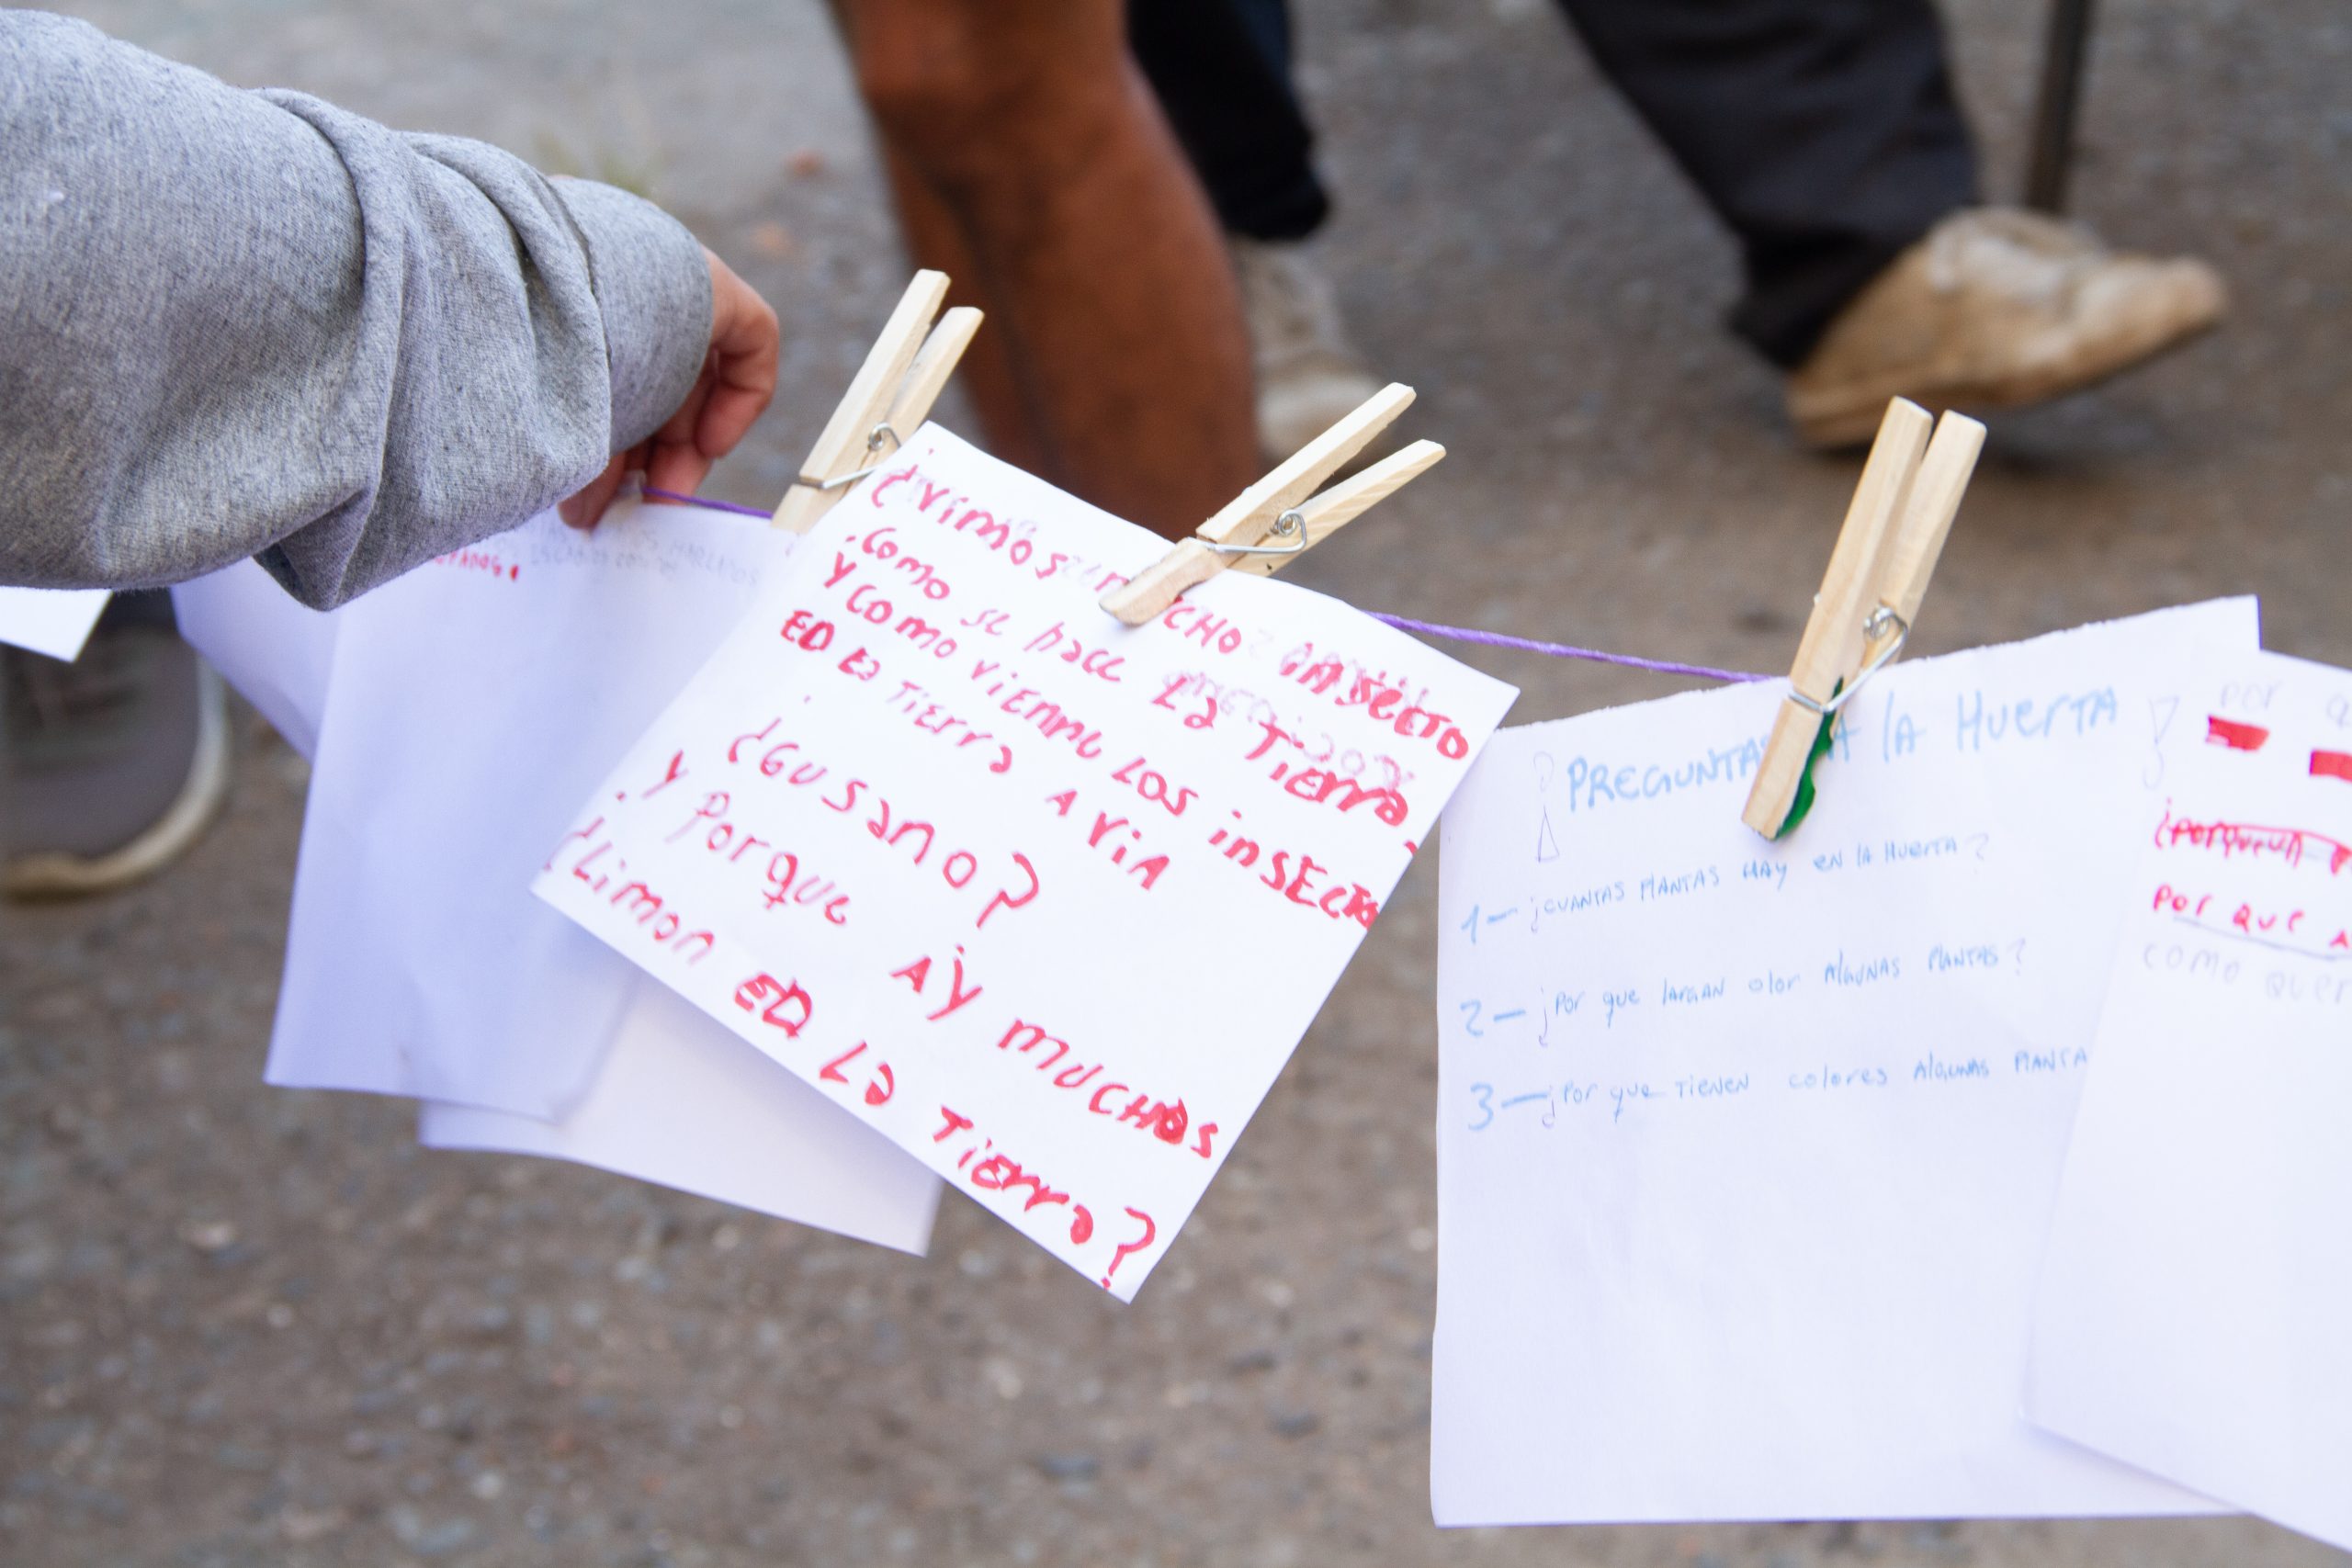 ¿vimos mucho insecto
.Como se hace La Tierra?
y como vienne Los insECto
ED La Tierra A viA
¿Gusano?
.y Porque Aỳ muchos
¿Limon ED La Tierra?
PREGUNTAS A lA HuerTA
1-¿CUANTAS PlANTAS HAY EN lA HuerTA?
2-¿Por que lArgAN olor AlGUNAS PlANTAS?
3-¿Por que TIENEN colores AlGUNAS PlANTA
por
¿porque
Por que A
como